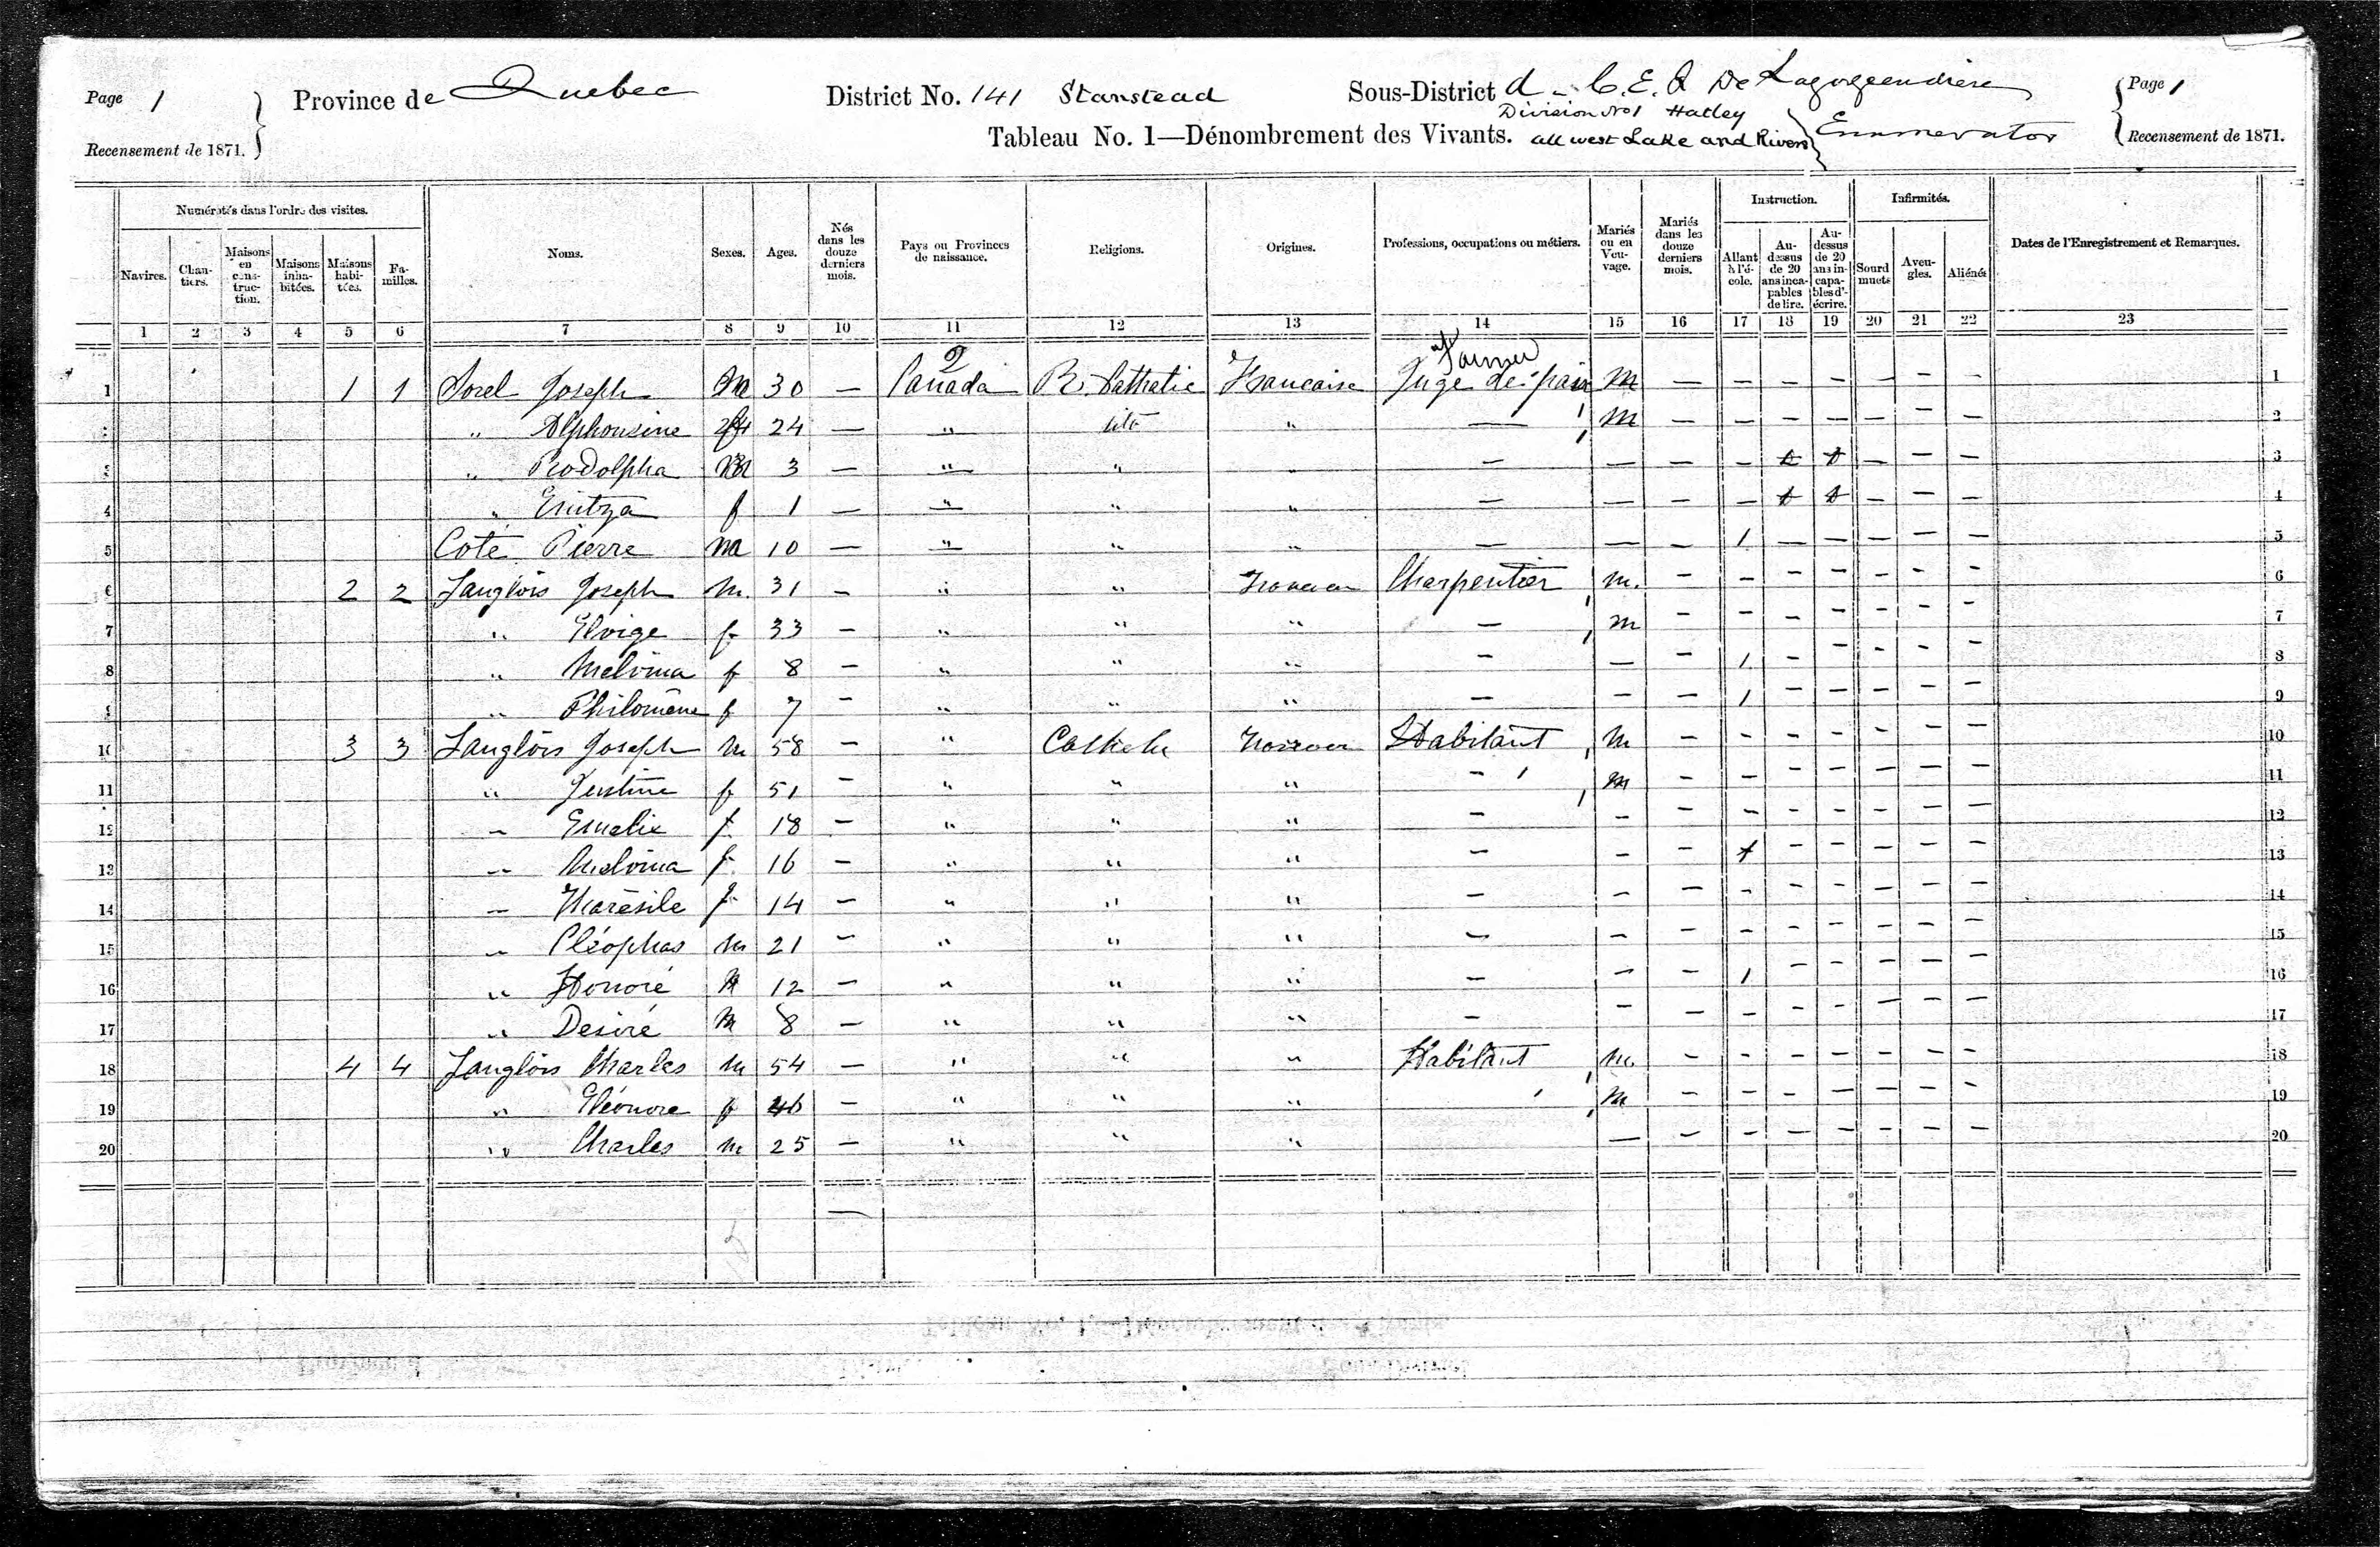 Page 1
Province de Quebec
District No. 141 Stanstead
Sous-District d - C. E. De
Division No 1 Hatley
all west Lake and Rivers
Enumerator
Page 1
Recensement de 1871.
Tableau No. 1—Dénombrement des Vivants.
Recensement de 1871.
Numérotés dans l'ordre des visites.
Navires.
Chantiers.
Maisons en construction.
Maisons inhabitées.
Maisons habitées.
Familles.
Noms.
Sexes.
Ages.
Nés dans les douze derniers mois.
Pays ou Provinces de naissance.
Religions.
Origines.
Professions, occupations ou métiers.
Mariés ou en Veuvage.
Mariés dans les douze derniers mois.
Instruction.
Allant à l'école.
Au-dessus de 20 ans incapables de lire.
Au-dessus de 20 ans incapables d'écrire.
Infirmités.
Sourd muets
Aveugles.
Aliénés
Dates de l'Enregistrement et Remarques.
1 2 3 4 5 6 7 8 9 10 11 12 13 14 15 16 17 18 19 20 21 22 23
Q Farmer
1 1 1 Sorel Joseph M 30 — Canada R. Catholic Francaise Juge de paix M — — — — — — — 1
2 " Alphonsine f 24 — " dito " — M — — — — — — — 2
3 " Rodolpha M 3 — " " — — — — — — — — 3
4 " f 1 — " " " — — — — — — — 4
5 Coté Pierre m 10 — " " " — — — 1 — — — — — 5
6 2 2 Langlois Joseph M. 31 — " " Charpentier m. — — — — — — — 6
7 " f 33 — " " " — m — — — — — — — 7
8 " Melvina f 8 — " " " — — — 1 — — — — — 8
9 " Philomène f 7 — " " " — — — 1 — — — — — 9
10 3 3 Langlois Joseph M 58 — " Habitant M — — — — — — — 10
11 " Justine f 51 — " " " — M — — — — — — — 11
12 " Emelie f 18 — " " " — — — — — — — — — 12
13 " Melvina f. 16 — " " " — — — — — — — — 13
14 " f 14 — " " " — — — — — — — — — 14
15 " Cléophas M 21 — " " " — — — — — — — — — 15
16 " Honoré M 12 — " " " — — — 1 — — — — — 16
17 " Desiré M 8 — " " " — — — — — — — — — 17
18 4 4 Langlois Charles M 54 — " " " Habitant M. — — — — — — — 18
19 " Eléonore f 46 — " " " M — — — — — — — 19
20 " Charles M 25 — " " " — — — — — — — — 20